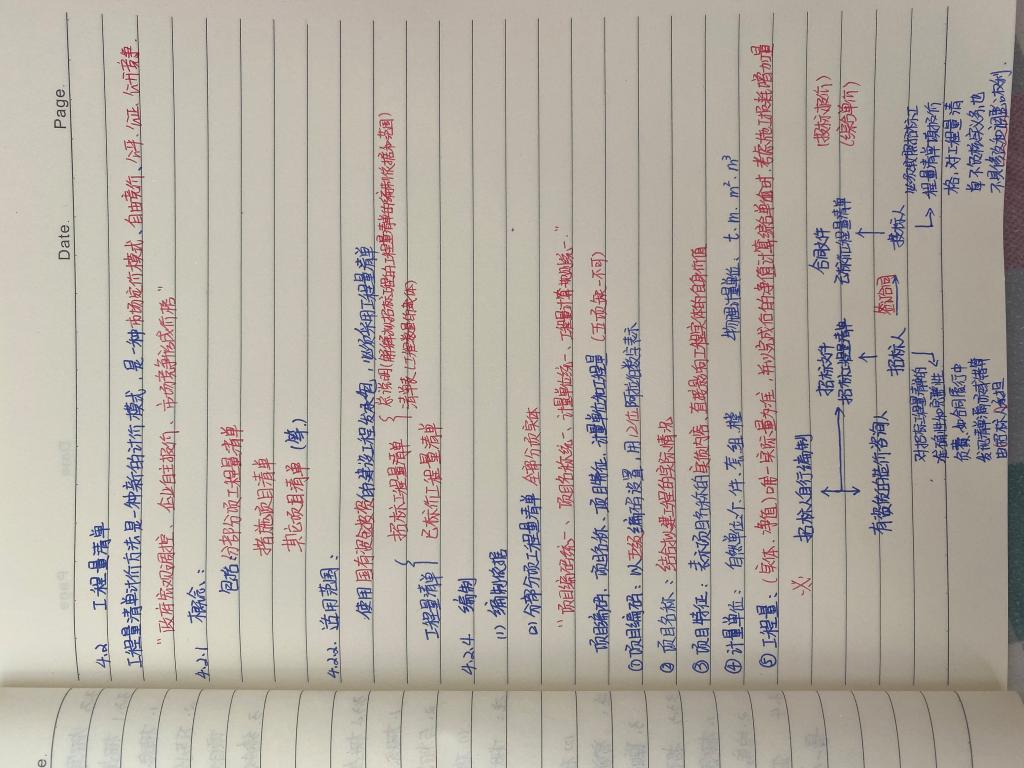 Date.
Page.
4.2 工程量清单
工程量清单计价方法是一种新的计价模式，是一种市场定价模式、自由竞价、公平、公正、公开竞争.
"政府宏观调控、企业自主报价、市场竞争形成价格"
4.2.1 概念：
包括 分部分项工程量清单
措施项目清单
其它项目清单（等）
4.2.2. 适用范围：
使用国有资金投资的建设工程发承包，必须采用工程量清单
工程量清单 { 招标工程量清单 {
清单表（工程数量的载体）
已标价工程量清单
4.2.4 编制
(1) 编制依据
(2) 分部分项工程量清单 分部分项实体
"项目编码统一、项目名称统一、计量单位统一、工程量计算规则统一."
项目编码、项目名称、项目特征、计量单位和工程量（五项缺一不可）
①项目编码：以五级编码设置，用12位阿拉伯数字表示
② 项目名称：结合拟建工程的实际情况
③项目特征：表示项目名称的自身价值
④计量单位：自然单位：个、件、套、组、樘 物理计量单位、t、m、m²、m³
⑤工程量：（实体、净值）唯一实际量为准，并以完成后的净值计算
招标人自行编制
有资质的造价咨询人
招标文件
招标工程量清单
招标人
签合同
合同文件
已标价工程量清单
投标人
（投标报价）
（综合单价）
对招标工程量清单的
准确性和完整性
负责，如合同履行中
发现清单漏而或错算
由招标人承担
必须按照招标
工程量清单填报价
格，对工程量清
单不负核实义务，也
不具修改和调整的权利.